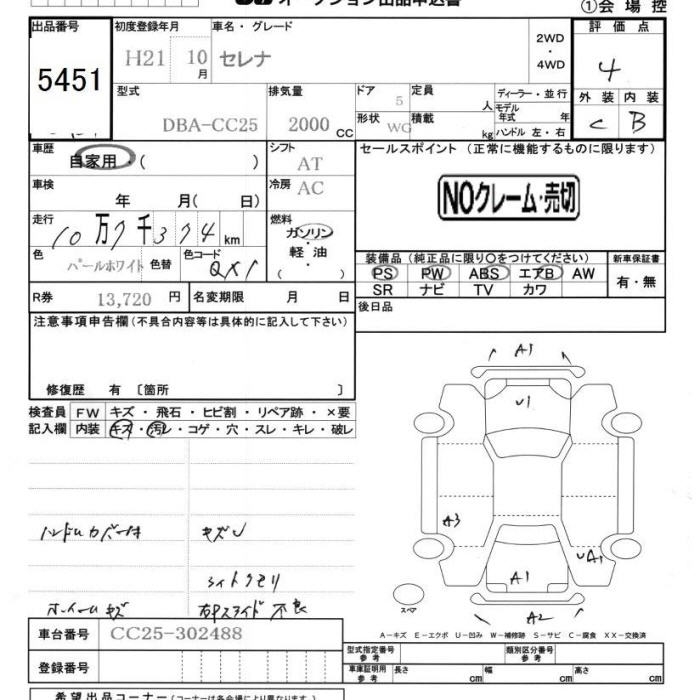 オークション出品申込書
①会場控
出品番号
5451
初度登録年月
H21 10月
車名・グレード
セレナ
2WD
・
4WD
評価点
4
外装 内装
C B
型式
DBA-CC25
排気量
2000 cc
ドア
5
定員
人
形状
WG
積載
kg
ディーラー・並行
モデル年式 年
ハンドル 左・右
車歴
自家用・( )
シフト
AT
車検
年 月( 日)
冷房
AC
走行
10万7千374km
燃料
ガソリン・
軽・油
( )
色
パールホワイト
色替
色コード
QX1
R券
13,720 円
名変期限 月 日
セールスポイント (正常に機能するものに限ります)
NOクレーム・売切
装備品(純正品に限り○をつけてください)
PS PW ABS エアB AW
SR ナビ TV カワ
新車保証書
有・無
後日品
注意事項申告欄(不具合内容等は具体的に記入して下さい)
修復歴 有〔箇所 〕
検査員
記入欄
FW キズ・飛石・ヒビ割・リペア跡・×要
内装 キズ・汚レ・コゲ・穴・スレ・キレ・破レ
ハンドルカバー付
キズU
ライトクモリ
ホイールキズ
右Pスライド不良
A1
U1
A3
UA1
A1
A2
スペア
A-キズ E-エクボ U-凹み W-補修跡 S-サビ C-腐食 XX-交換済
車台番号
CC25-302488
登録番号
型式指定番号
参考
類別区分番号
参考
車庫証明用
参考
長さ cm
幅 cm
高さ cm
希望出品コーナー(コーナーは各会場により異なります)